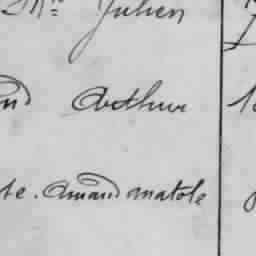 Mre Julien
nd Arthur
te. Amand matole